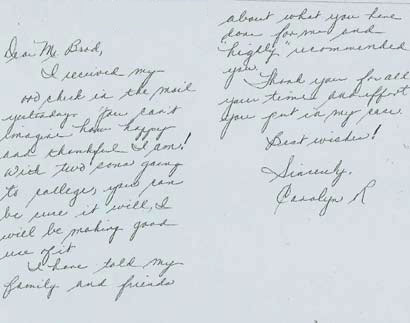 Dear Mr. Brod,
I received my
check in the mail
yesterday. You can't
imagine how happy
and thankful I am!
With two sons going
to colleges, you can
be sure it will, I
will be making good
use of it
I have told my
family and friends
about what you have
done for me and
"highly" recommended
you.
Thank you for all
your time and effort
you put in my case.
Best wishes!
Sincerely,
Carolyn R